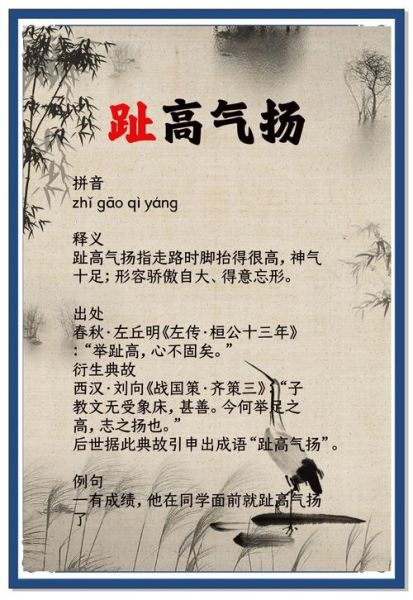 趾高气扬
拼音
zhǐ gāo qì yáng
释义
趾高气扬指走路时脚抬得很高，神气
十足；形容骄傲自大、得意忘形。
出处
春秋·左丘明《左传·桓公十三年》
：“举趾高，心不固矣。”
衍生典故
西汉·刘向《战国策·齐策三》：“子
教文无受象床，甚善。今何举足之
高，志之扬也。”
后世据此典故引申出成语“趾高气扬”。
例句
一有成绩，他在同学面前就趾高气扬
了